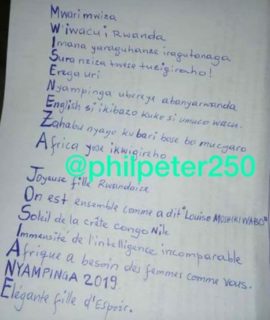 Mwari mwiza
Wiwacu i Rwanda
Imana yaraguhanze iragutonaga
Isura nziza twese tuyigireho!
Erega uri
Nyampinga ubereye abanyarwanda
English si ikibazo kuko si umuco wacu.
Zahabu nyayo kubari bose bo mucyaro
Africa yose ikwigireho
@philpeter250
Joyeuse fille Rwandaise
On est ensemble comme a dit "Louise MUSHIKIWABO"
Soleil de la crête congo Nile
Immensité de l'intelligence incomparable
Afrique a besoin des femmes comme vous.
NYAMPINGA 2019.
Elégante fille d'Espoir.